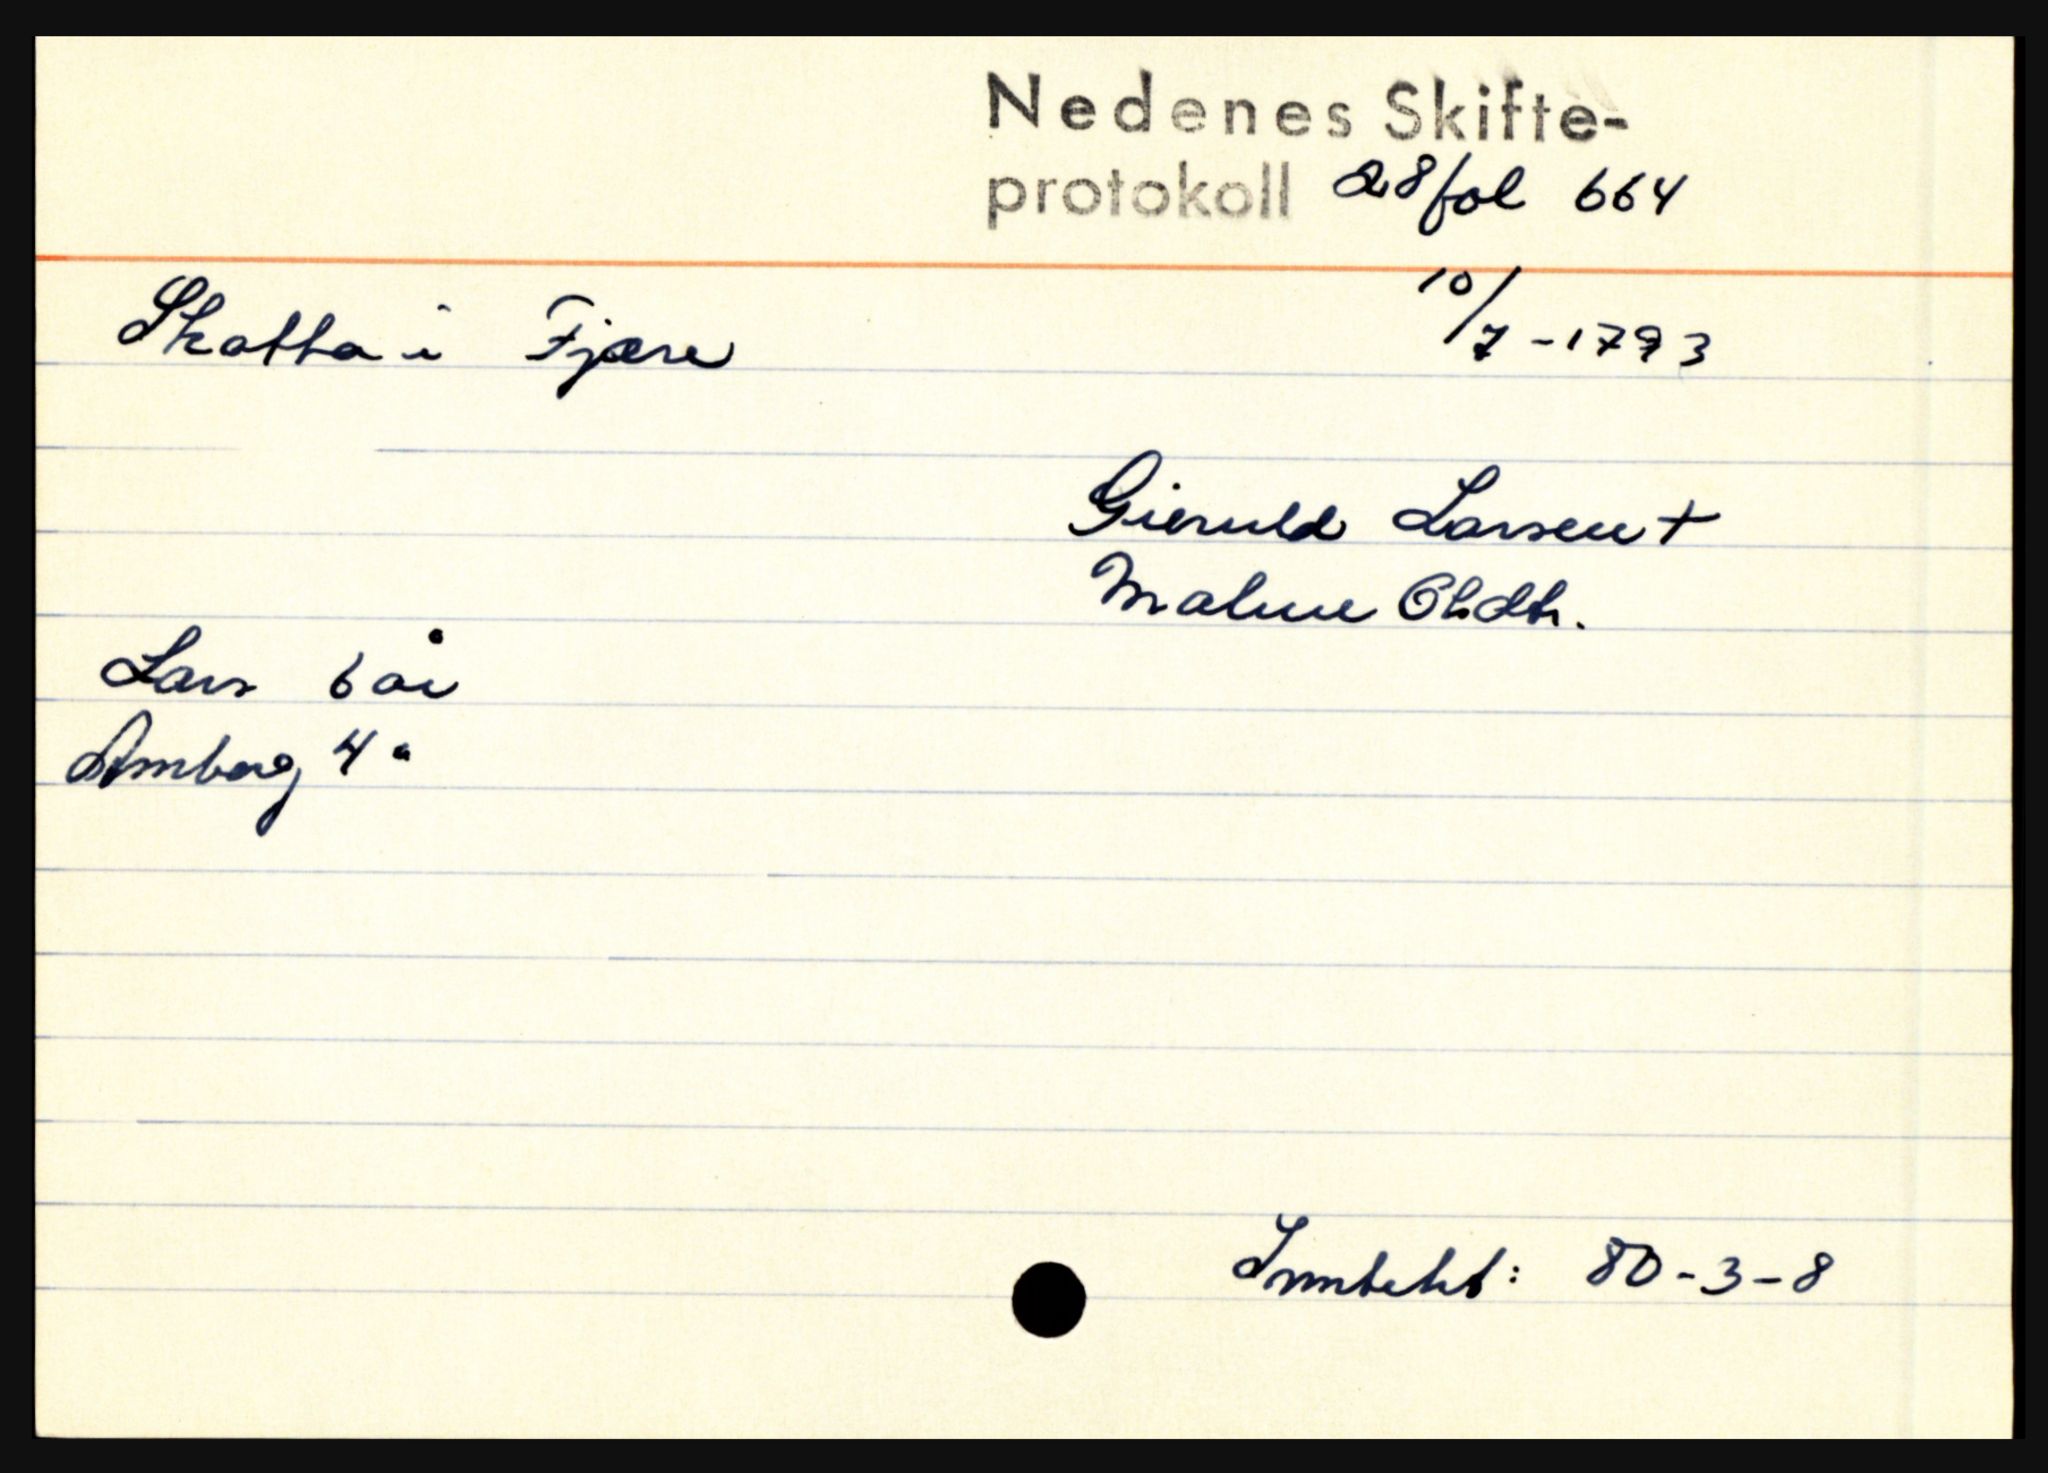 Nedenes Skifte-
protokoll 28 fol 664
Skatta i Fjære
10/7-1793
Gieruld Larsen +
Malene Olsdtr.
Lars 6 år
Amberg 4 "
Inntekt: 80-3-8